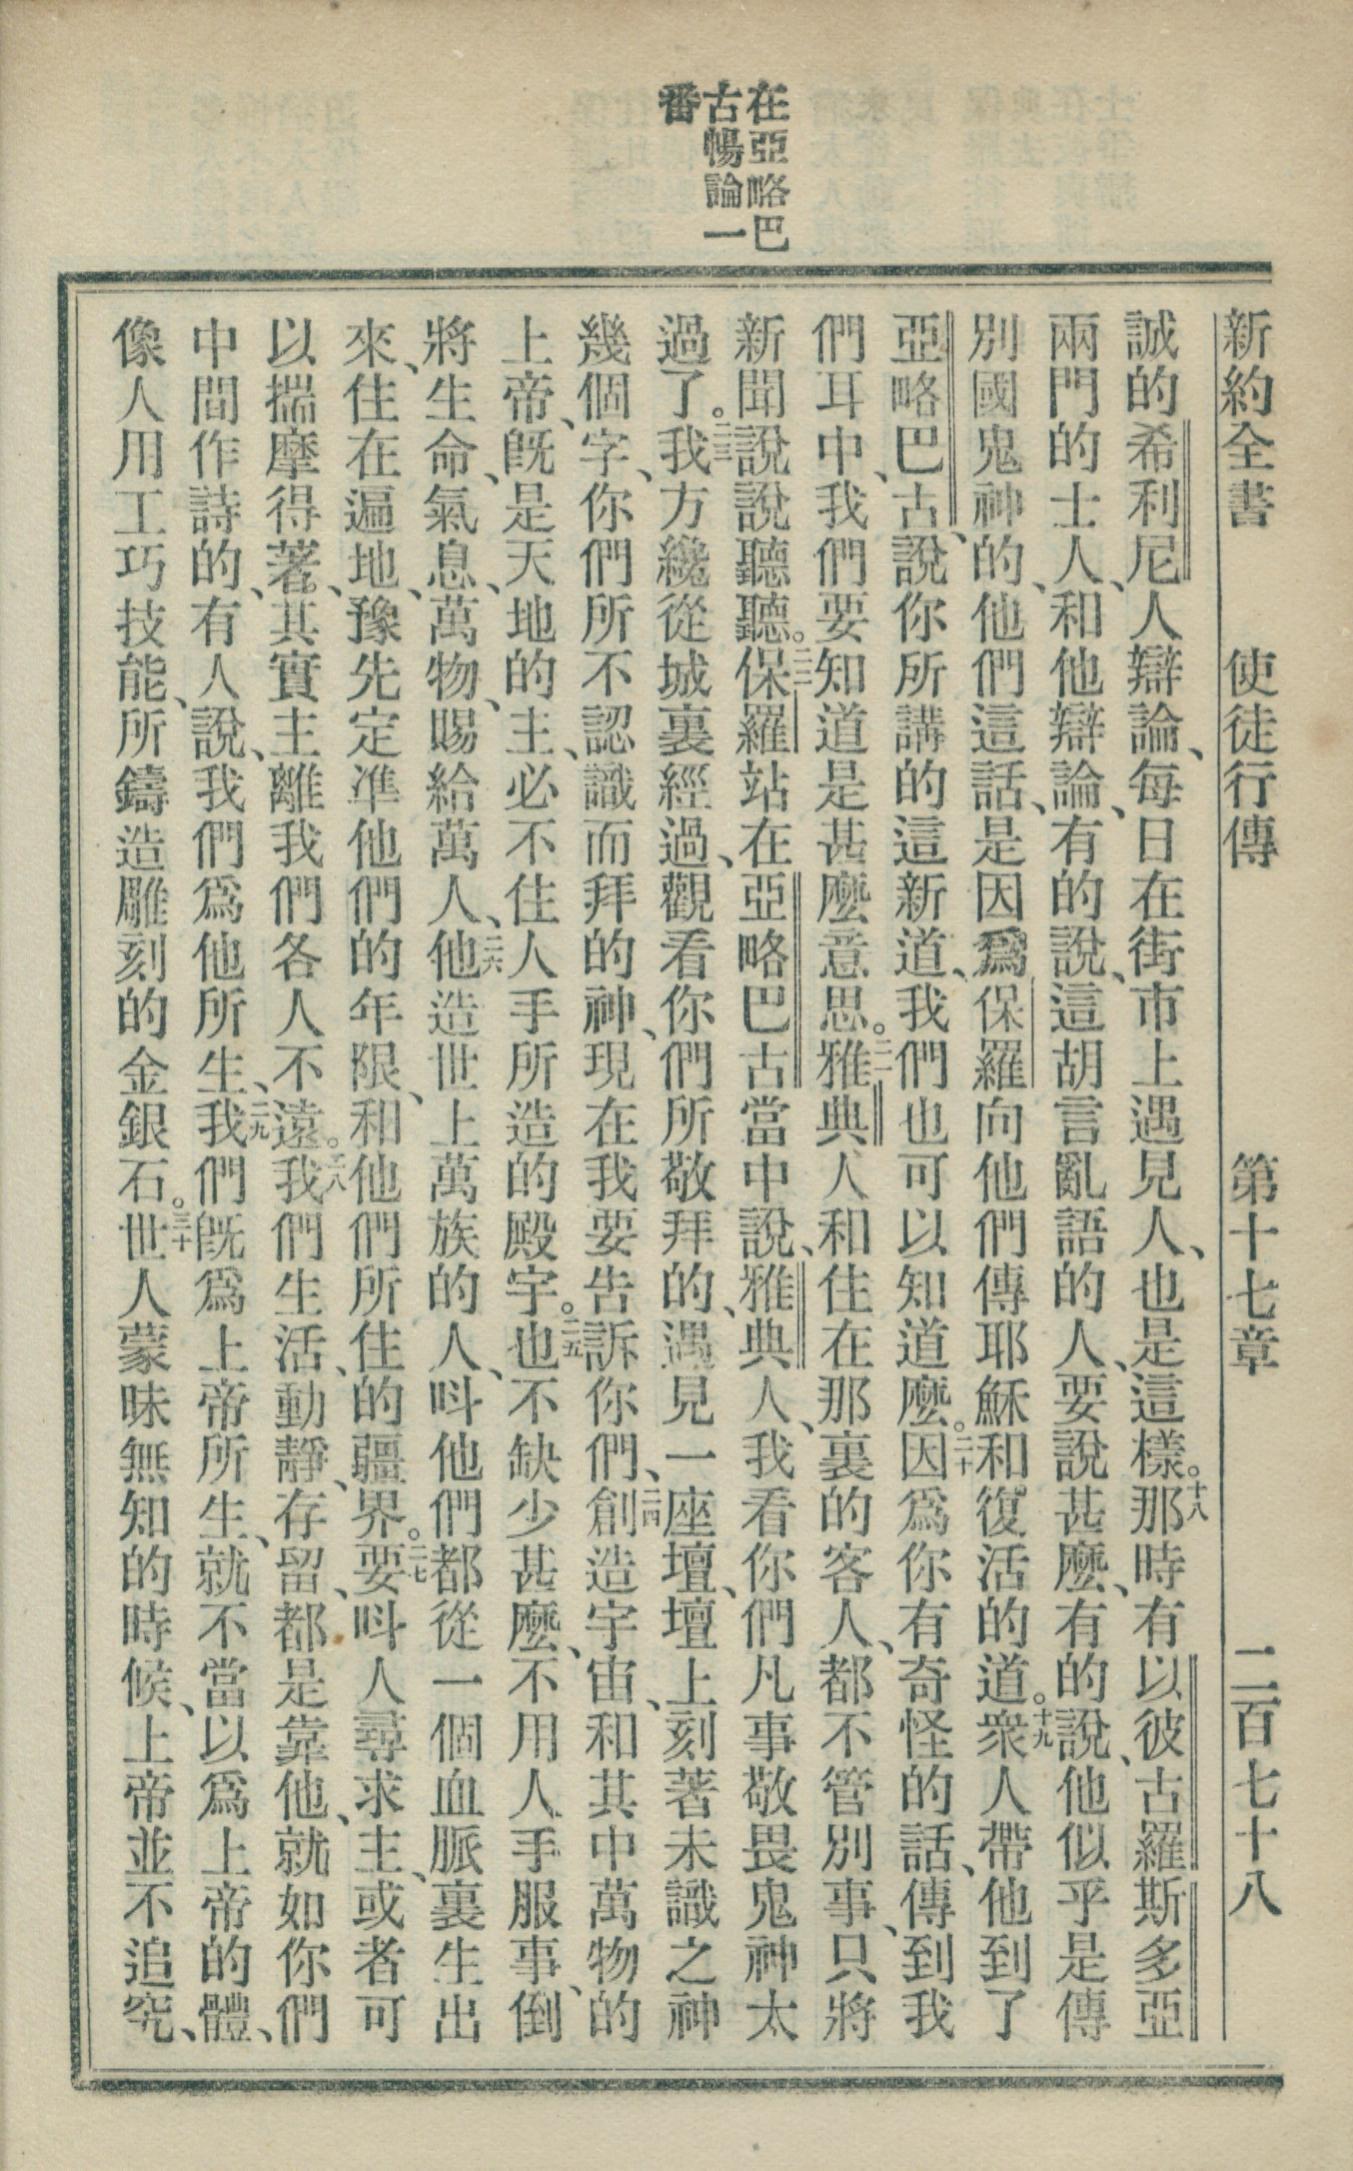 在亞略巴
古暢論一
番
新約全書 使徒行傳 第十七章 二百七十八
誠的希利尼人辯論、每日在街市上遇見人、也是這樣。十八那時有以彼古羅斯多亞
兩門的士人、和他辯論、有的說、這胡言亂語的人、要說甚麼、有的說、他似乎是傳
別國鬼神的、他們這話、是因爲保羅向他們傳耶穌和復活的道。十九衆人帶他到了
亞略巴古、說你所講的這新道、我們也可以知道麼。二十因爲你有奇怪的話、傳到我
們耳中、我們要知道是甚麼意思。二一雅典人和住在那裏的客人、都不管別事、只將
新聞說說聽聽。二二保羅站在亞略巴古當中說、雅典人、我看你們凡事敬畏鬼神太
過了。二三我方纔從城裏經過、觀看你們所敬拜的、遇見一座壇、壇上刻著未識之神
幾個字、你們所不認識而拜的神、現在我要告訴你們、二四創造宇宙、和其中萬物的
上帝、旣是天地的主、必不住人手所造的殿宇。二五也不缺少甚麼、不用人手服事、倒
將生命、氣息、萬物、賜給萬人、二六他造世上萬族的人、呌他們都從一個血脈裏生出
來、住在遍地、豫先定準他們的年限、和他們所住的疆界。二七要呌人尋求主、或者可
以揣摩得著、其實主離我們各人不遠。二八我們生活、動靜、存留、都是靠他、就如你們
中間作詩的、有人說、我們爲他所生、二九我們旣爲上帝所生、就不當以爲上帝的體、
像人用工巧技能、所鑄造雕刻的金銀石。三十世人蒙昧無知的時候、上帝並不追究、